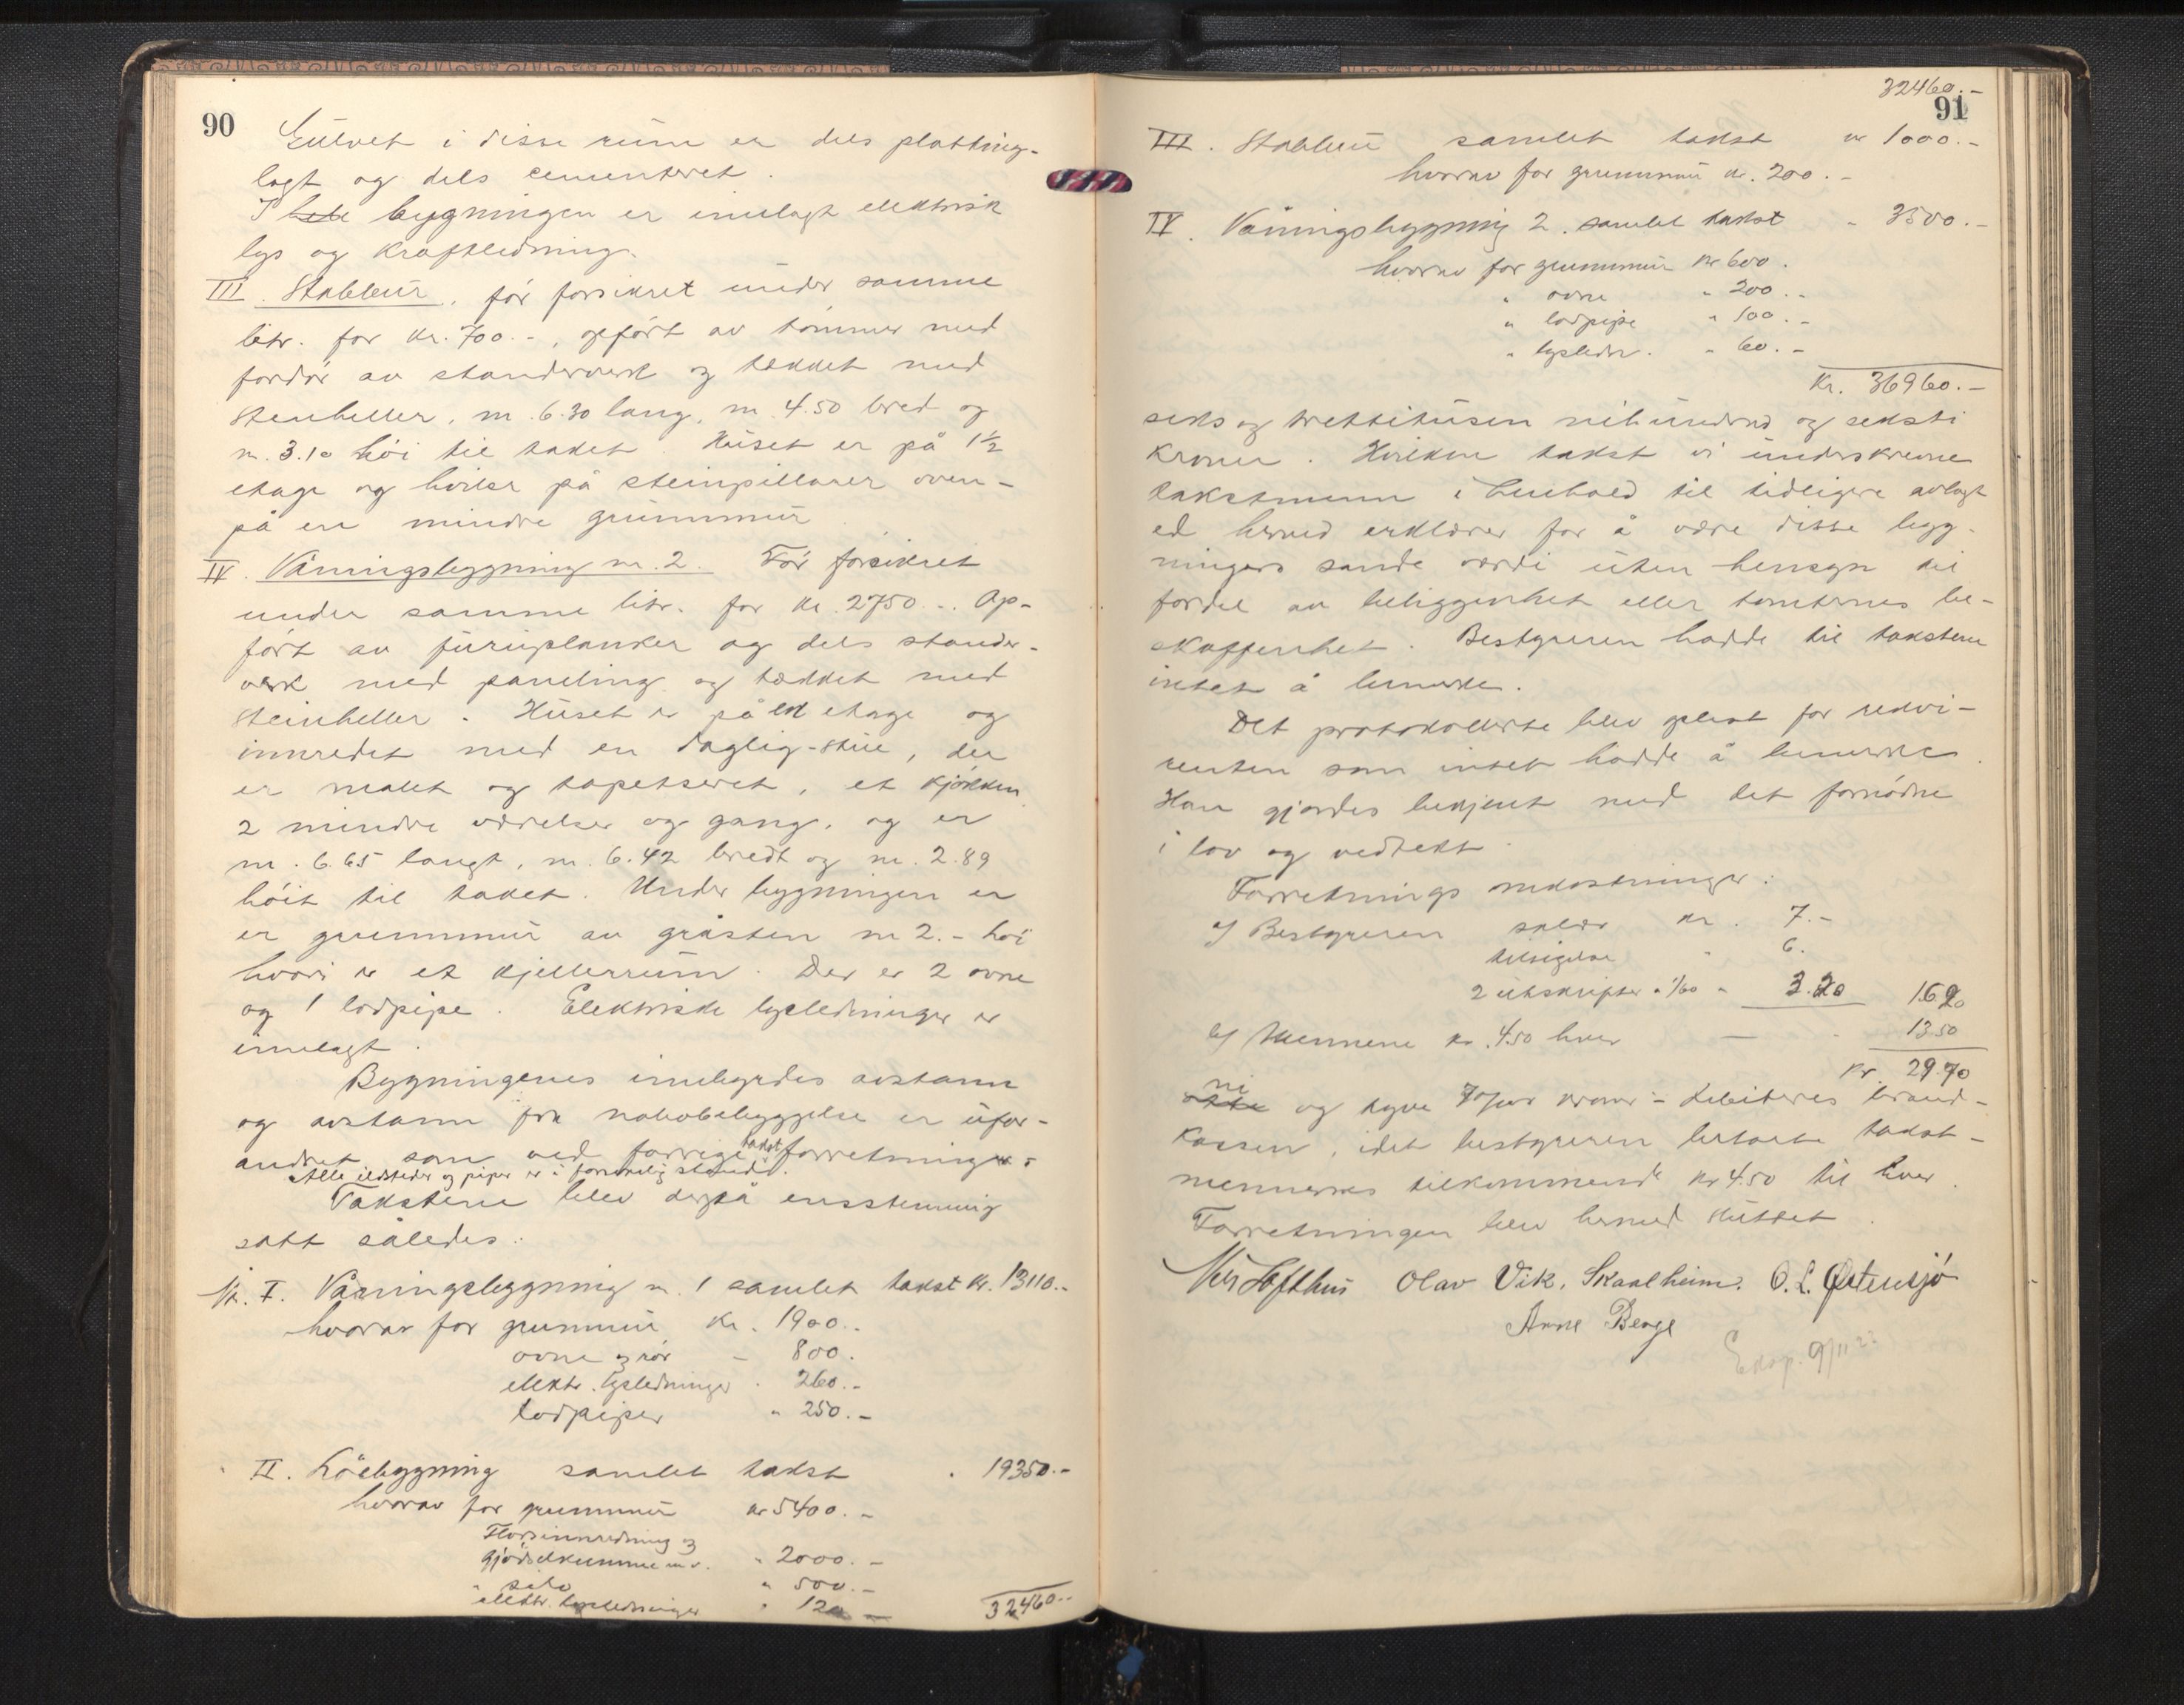 90
Gulvet i disse rum er dels platting-
lagt og dels cementeret.
I hele bygningen er innlagt elektrisk
lys og kraftledning.
III. Stabbur, før forsikret under samme
litr. for kr. 700.-, opført av tømmer med
fordør av standerverk og tækket med
stenheller, m. 6.30 lang, m. 4.50 bred og
m. 3.10 høi til taket. Huset er på 1½
etage og hviler på steinpillarer oven-
på en mindre grunnmur.
IV. Våningsbygning nr. 2. Før forsikret
under samme litr. for kr. 2750.-. Op-
ført av furuplanker og dels stander-
verk med paneling og tækket med
steinheller. Huset er på en etage og
innredet med en daglig-stue, der
er malet og tapetseret, et kjøkken
2 mindre værelser og gang, og er
m. 6.65 langt, m. 6.42 bredt og m. 2.89
høit til taket. Under bygningen er
er grunnmur av gråsten m 2.- høi
hvori er et kjellerrum. Der er 2 ovne
og 1 lodpipe. Elektriske lysledninger er
innlagt.
Bygningenes innbyrdes avstann
og avstann fra nabobebyggelse er ufor-
andret som ved forrige takstforretning.
Alle ildsteder og piper er i forsvarlig stand.
Takstene blev derpå ensstemmig
satt således:
Nr. I. Våningsbygning nr. 1 samlet takst kr. 13110.-
hvorav for grunnmur kr. 1900.-
ovne og rør - 800.
elektr. lysledninger - 260.-
lodpiper " 250.-
II. Løebygning samlet takst " 19350.-
hvorav for grunnmur kr 5400.-
Florsinnredning og
gjødselkummer m.v. " 2000.-
" silo " 500.-
elektr. lysledninger " 120 -
32460.-
32460.-
91
III. Stabbur samlet takst kr 1000.-
hvorav for grunnmur kr. 200.-
IV. Våningsbygning 2. samlet takst - 3500.-
hvorav for grunnmur kr 600.
" ovne " 200.-
" lodpipe " 500.-
" lysledn. " 60.-
Kr. 36960.-
seks og trettitusen nihundred og seksti
kroner. Hvilken takst vi underskrevne
takstmenn i henhold til tidligere avlagt
ed herved erklærer for å være disse byg-
ningers sande værdi uten hensyn til
fordel av beliggenhet eller tomternes be-
skaffenhet. Bestyreren hadde til taksten
intet å bemerke.
Det protokollerte blev oplest for rekvi-
renten som intet hadde å bemerke.
Han gjordes bekjent med det fornødne
i lov og vedtekt.
Forretnings omkostninger:
a/ Bestyreren salær kr. 7.-
tilsigelse " 6.
2 utskrifter a 1/60 " 3.20 16 20
b/ Mennene kr. 4.50 hver — - 13 50
Kr. 29.70
ni
otte og tyve 70/100 kroner - debiteres brand-
kassen, idet bestyreren betalte takst-
mennenes tilkommende kr 4.50 til hver.
Forretningen blev hermed sluttet.
Lofthus Olav Vik. Skaalheim. O. L. Østensjø
Arne Berge
Eksp. 9/11 23